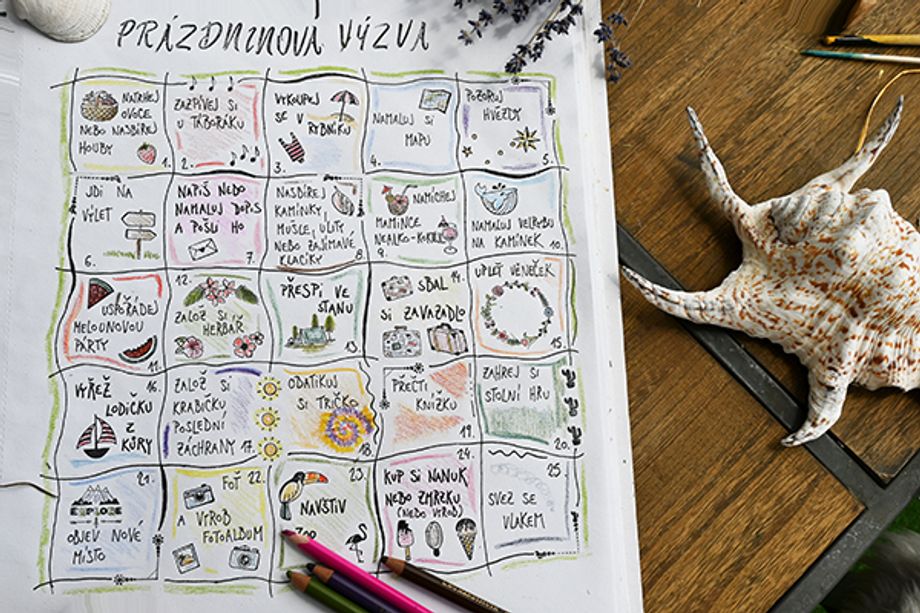 PRÁZDNINOVÁ VÝZVA
NATRHEJ
OVOCE
NEBO NASBÍREJ
HOUBY
1.
ZAZPÍVEJ SI
U TÁBORÁKU
2.
VYKOUPEJ
SE V
RYBNÍKU
3.
NAMALUJ SI
MAPU
4.
POZORUJ
HVĚZDY
5.
JDI NA
VÝLET
6.
NAPIŠ NEBO
NAMALUJ DOPIS
A POŠLI HO
7.
NASBÍREJ
KAMÍNKY,
MUŠLE, ULITY
NEBO ZAJÍMAVÉ
KLACÍKY
8.
NAMÍCHEJ
MAMINCE
NEALKO-KOKTEJL
9.
NAMALUJ VELRYBU
NA KAMÍNEK
10.
USPOŘÁDEJ
MELOUNOVOU
PÁRTY
11.
12.
ZALOŽ SI
HERBÁŘ
PŘESPI VE
STANU
13.
14.
SBAL
SI ZAVAZADLO
UPLEŤ VĚNEČEK
15.
VYŘEŽ
16.
LODIČKU
Z
KŮRY
ZALOŽ SI
KRABIČKU
POSLEDNÍ
ZÁCHRANY
17.
ODATIKUJ
SI TRIČKO
18.
PŘEČTI
KNÍŽKU
19.
ZAHREJ SI
STOLNÍ HRU
20.
21.
EXPLORE
OBJEV NOVÉ
MÍSTO
FOŤ
22.
A VYROB
FOTOALBUM
23.
NAVŠTIV
ZOO
24.
KUP SI NANUK
NEBO ZMRZKU
(NEBO VYROB)
25
SVEZ SE
VLAKEM